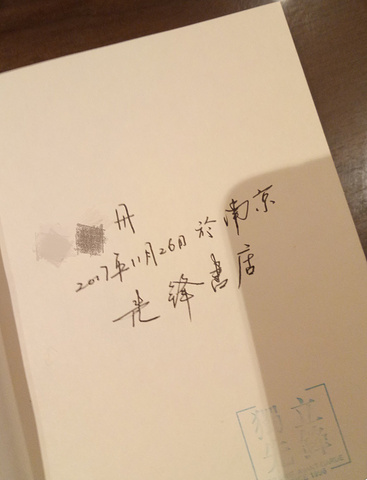 册
2017年11月26日於南京
先鋒書店
獨立
先鋒